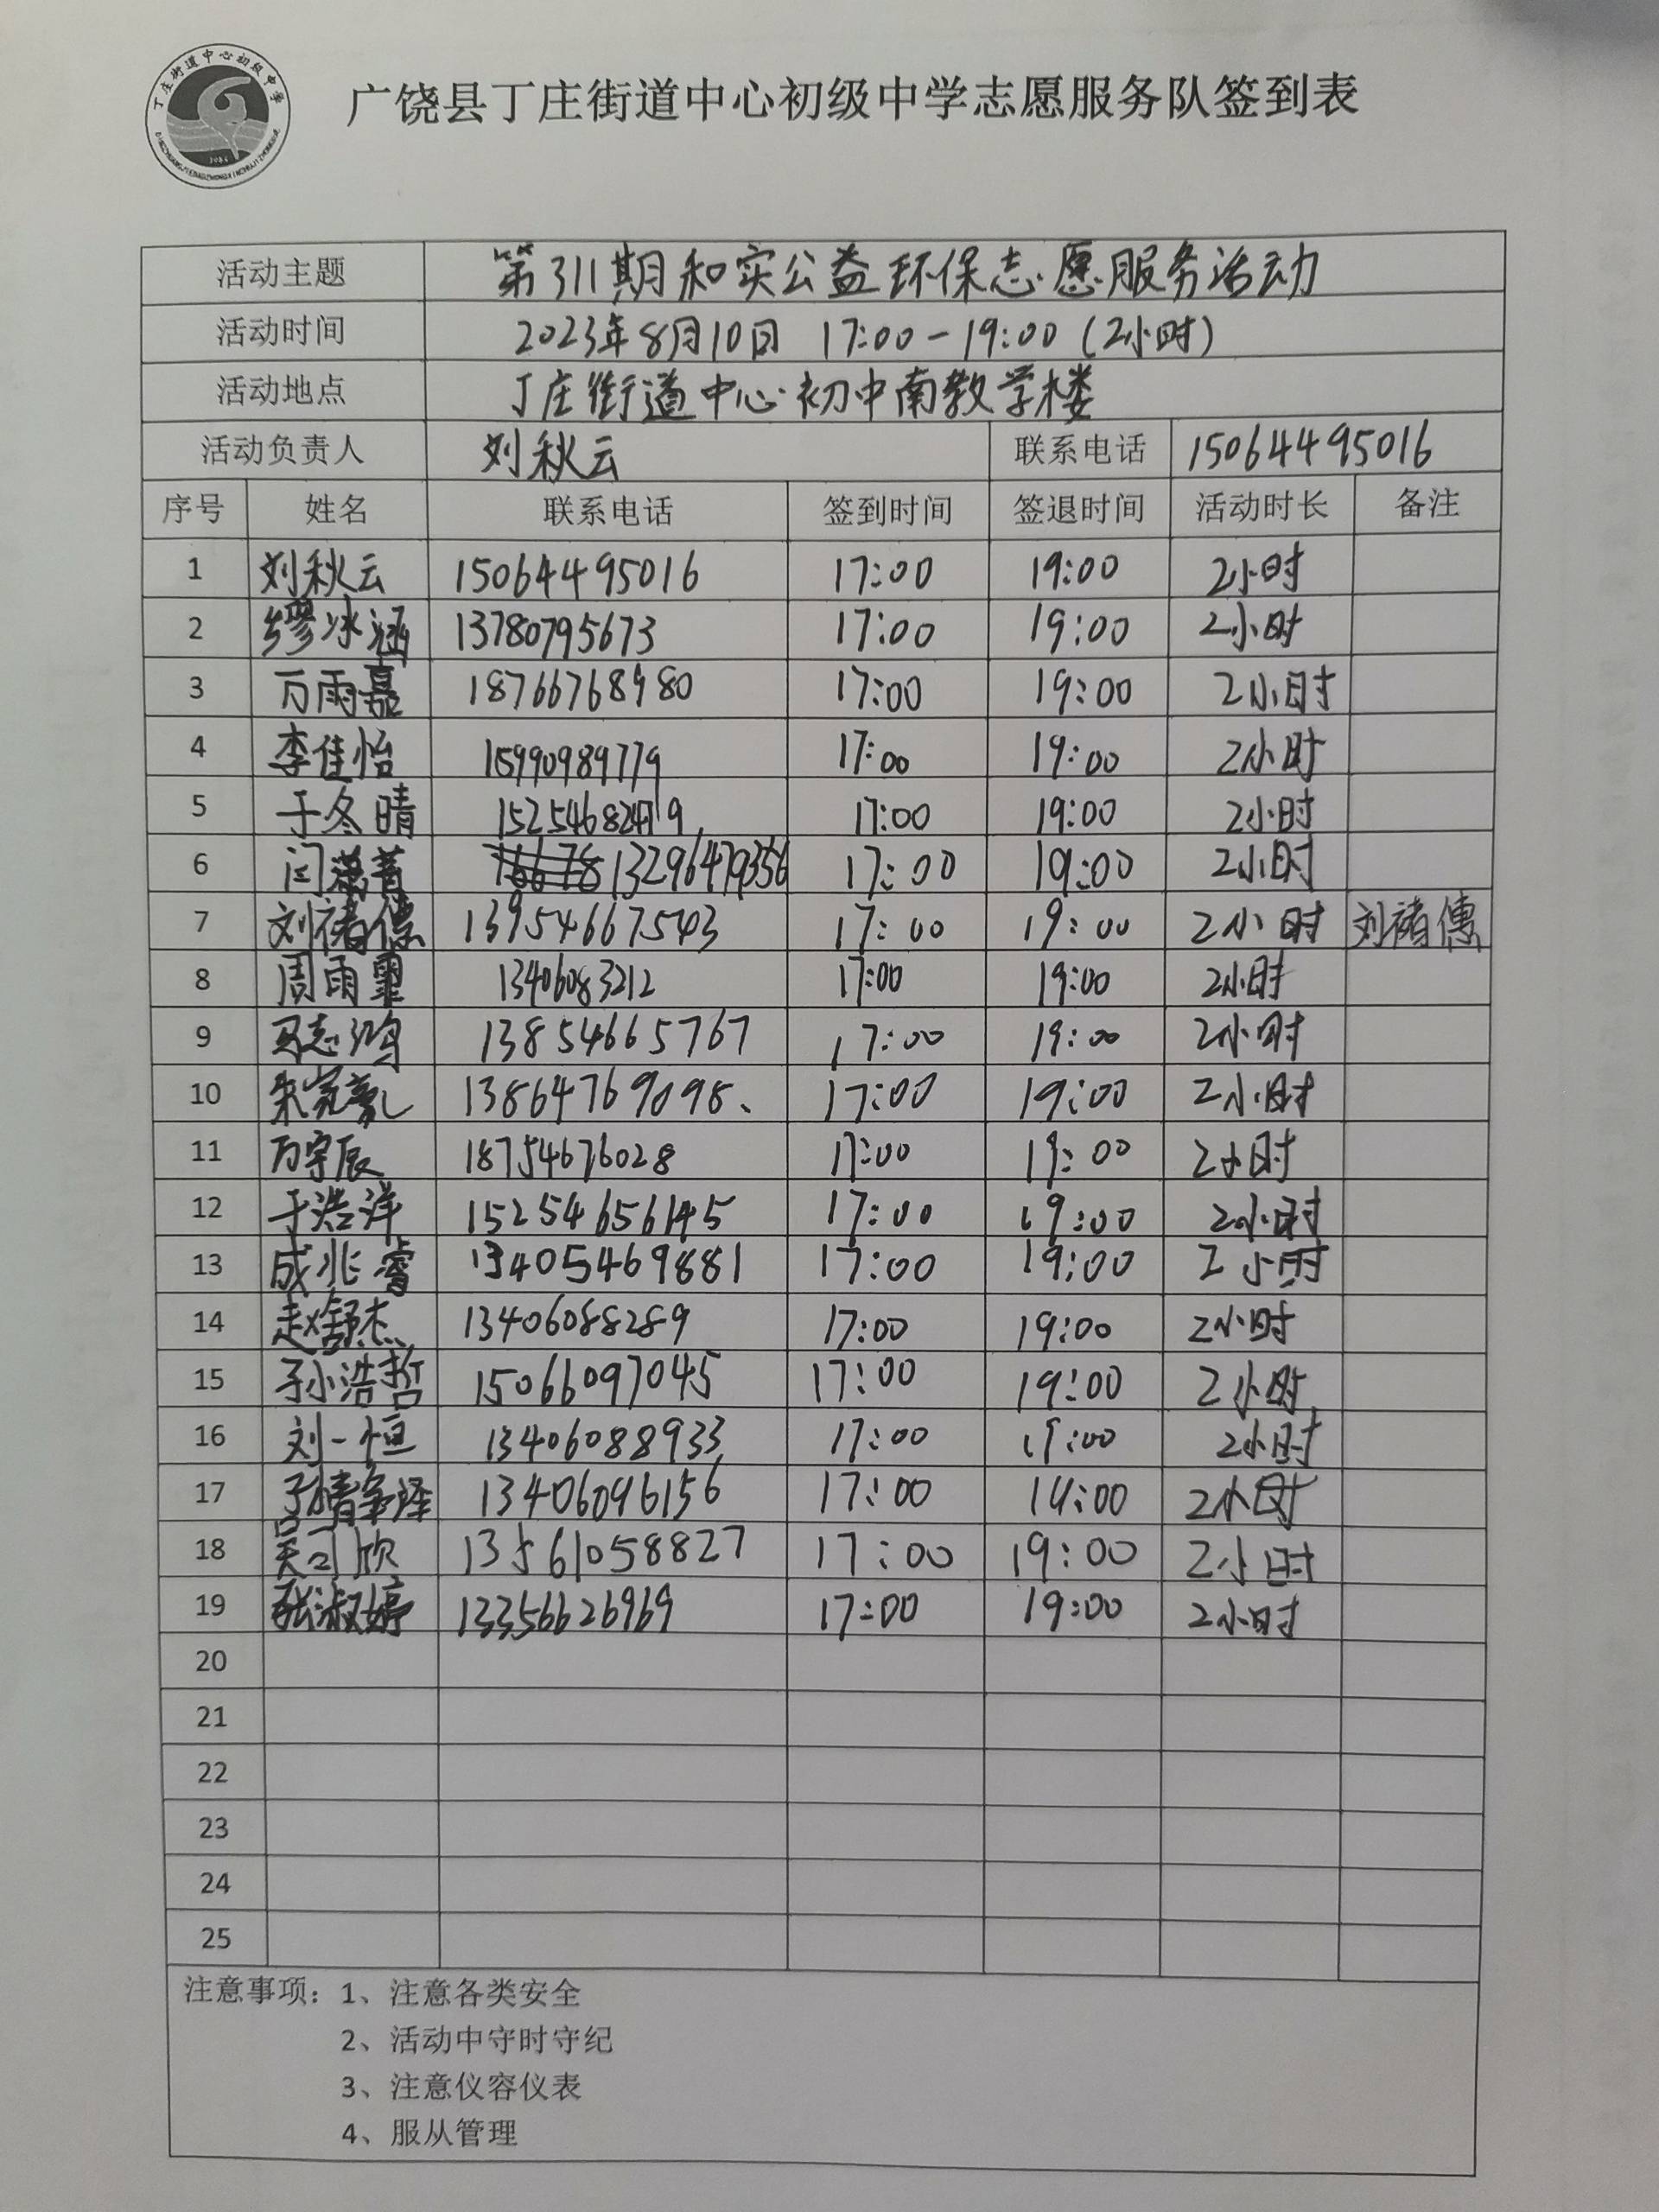 丁庄街道中心初级中学
1984
广饶县丁庄街道中心初级中学志愿服务队签到表
活动主题 第311期和实公益环保志愿服务活动
活动时间 2023年8月10日 17:00-19:00(2小时)
活动地点 丁庄街道中心初中南教学楼
活动负责人 刘秋云 联系电话 15064495016
序号 姓名 联系电话 签到时间 签退时间 活动时长 备注
1 刘秋云 15064495016 17:00 19:00 2小时
2 缪冰涵 13780795673 17:00 19:00 2小时
3 万雨嘉 18766768980 17:00 19:00 2小时
4 李佳怡 15990989779 17:00 19:00 2小时
5 于冬晴 17:00 19:00 2小时
6 闫潇菁 13296479356 17:00 19:00 2小时
7 刘褚傳 13954667543 17:00 19:00 2小时 刘褚傳
8 周雨霏 13406083212 17:00 19:00 2小时
9 马志鸿 13854665767 17:00 19:00 2小时
10 朱家豪 13864769098、 17:00 19:00 2小时
11 万宇辰 18754676028 17:00 19:00 2小时
12 于浩洋 15254656145 17:00 19:00 2小时
13 成兆睿 13405469881 17:00 19:00 2小时
14 赵舒杰 13406088289 17:00 19:00 2小时
15 孙浩哲 15066097045 17:00 19:00 2小时
16 刘一恒 13406088933 17:00 19:00 2小时
17 13406096156 17:00 19:00 2小时
18 吴司欣 13561058827 17:00 19:00 2小时
19 张淑婷 13356626969 17:00 19:00 2小时
20
21
22
23
24
25
注意事项：1、注意各类安全
2、活动中守时守纪
3、注意仪容仪表
4、服从管理